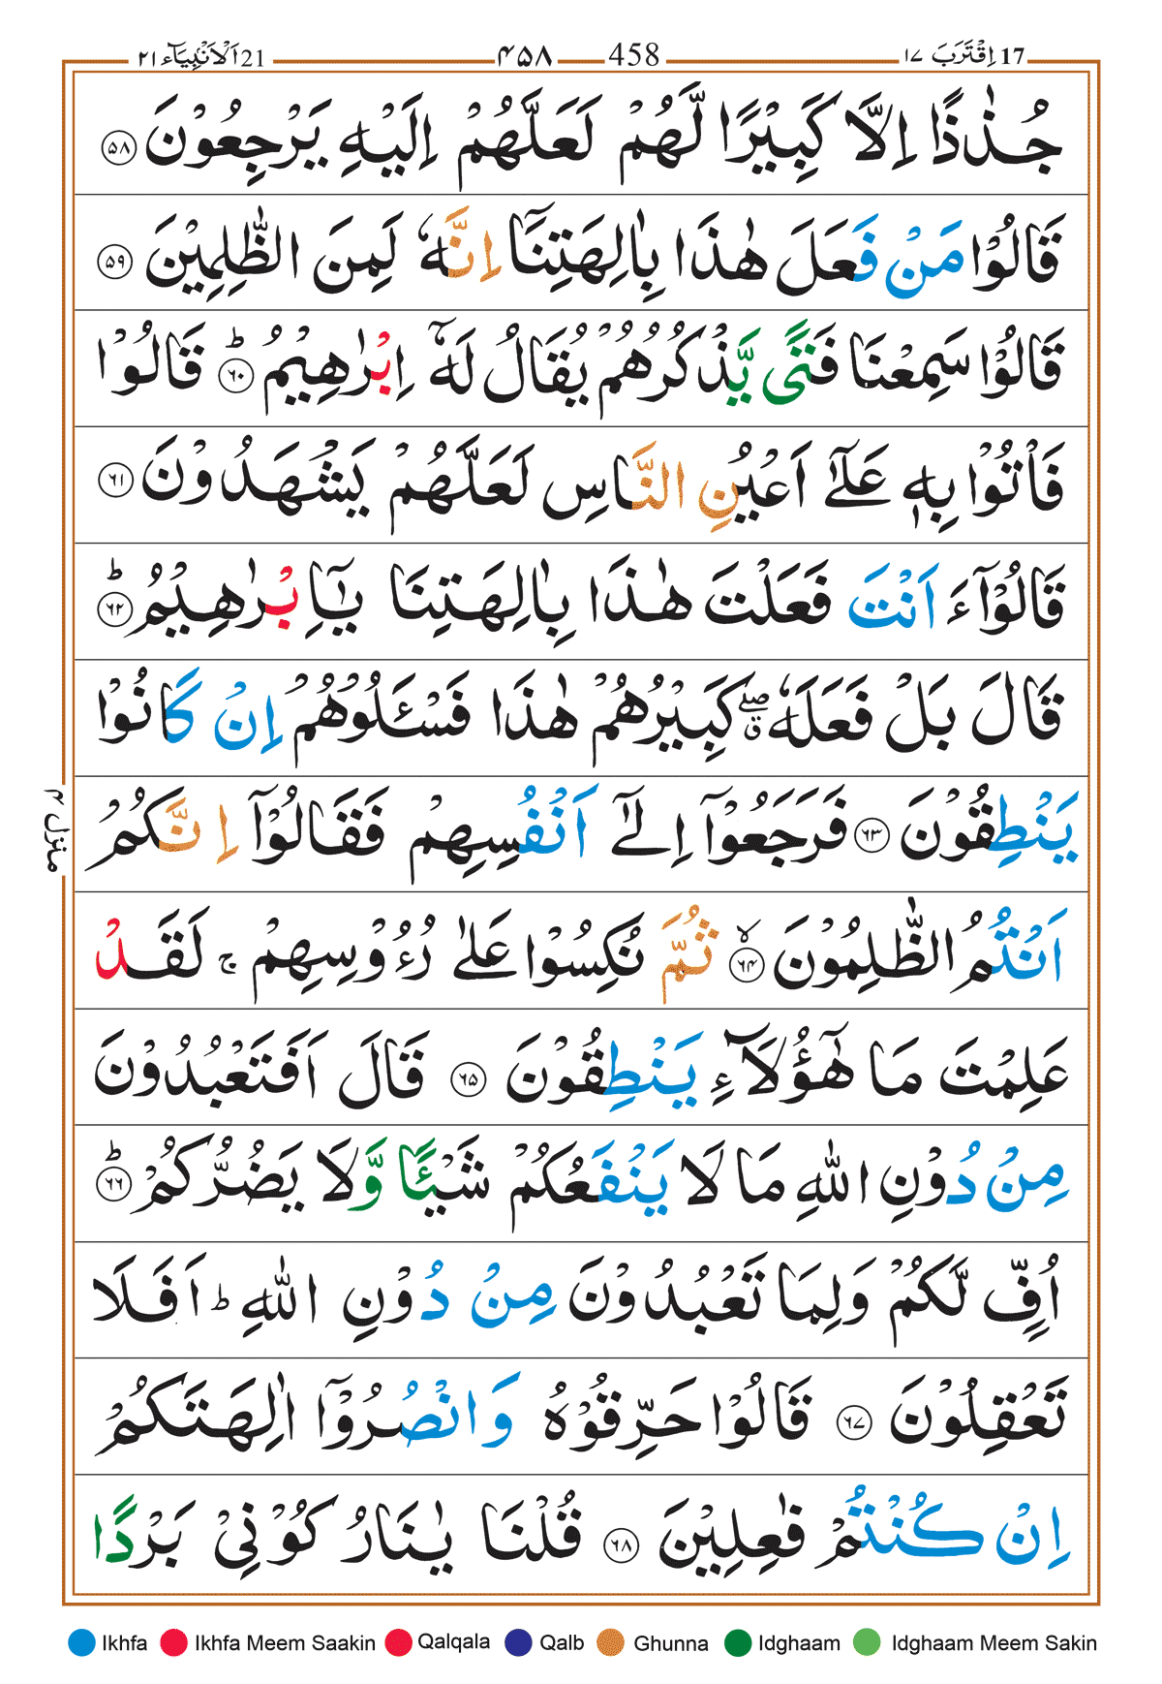 17 اِقْتَرَبَ ١٧ 458 ۴۵۸ 21 اَلْاَنْۢبِيَآء ٢١
جُذٰذًا اِلَّا كَبِيْرًا لَّهُمْ لَعَلَّهُمْ اِلَيْهِ يَرْجِعُوْنَ ۝۵۸
قَالُوْا مَنْ فَعَلَ هٰذَا بِاٰلِهَتِنَاۤ اِنَّهٗ لَمِنَ الظّٰلِمِيْنَ ۝۵۹
قَالُوْا سَمِعْنَا فَتًى يَّذْكُرُهُمْ يُقَالُ لَهٗۤ اِبْرٰهِيْمُ ؕ۝۶۰ قَالُوْا
فَاْتُوْا بِهٖ عَلٰۤى اَعْيُنِ النَّاسِ لَعَلَّهُمْ يَشْهَدُوْنَ ۝۶۱
قَالُوْۤا ءَاَنْتَ فَعَلْتَ هٰذَا بِاٰلِهَتِنَا يٰۤاِبْرٰهِيْمُ ؕ۝۶۲
قَالَ بَلْ فَعَلَهٗ ۖۗ كَبِيْرُهُمْ هٰذَا فَسْـَٔلُوْهُمْ اِنْ كَانُوْا
يَنْطِقُوْنَ ۝۶۳ فَرَجَعُوْۤا اِلٰۤى اَنْفُسِهِمْ فَقَالُوْۤا اِنَّكُمْ
اَنْتُمُ الظّٰلِمُوْنَ ۙ۝۶۴ ثُمَّ نُكِسُوْا عَلٰى رُءُوْسِهِمْ ۚ لَقَدْ
عَلِمْتَ مَا هٰۤؤُلَآءِ يَنْطِقُوْنَ ۝۶۵ قَالَ اَفَتَعْبُدُوْنَ
مِنْ دُوْنِ اللّٰهِ مَا لَا يَنْفَعُكُمْ شَيْـًٔا وَّلَا يَضُرُّكُمْ ؕ۝۶۶
اُفٍّ لَّكُمْ وَلِمَا تَعْبُدُوْنَ مِنْ دُوْنِ اللّٰهِ ؕ اَفَلَا
تَعْقِلُوْنَ ۝۶۷ قَالُوْا حَرِّقُوْهُ وَانْصُرُوْۤا اٰلِهَتَكُمْ
اِنْ كُنْتُمْ فٰعِلِيْنَ ۝۶۸ قُلْنَا يٰنَارُ كُوْنِيْ بَرْدًا
منزل ۴
Ikhfa Ikhfa Meem Saakin Qalqala Qalb Ghunna Idghaam Idghaam Meem Sakin